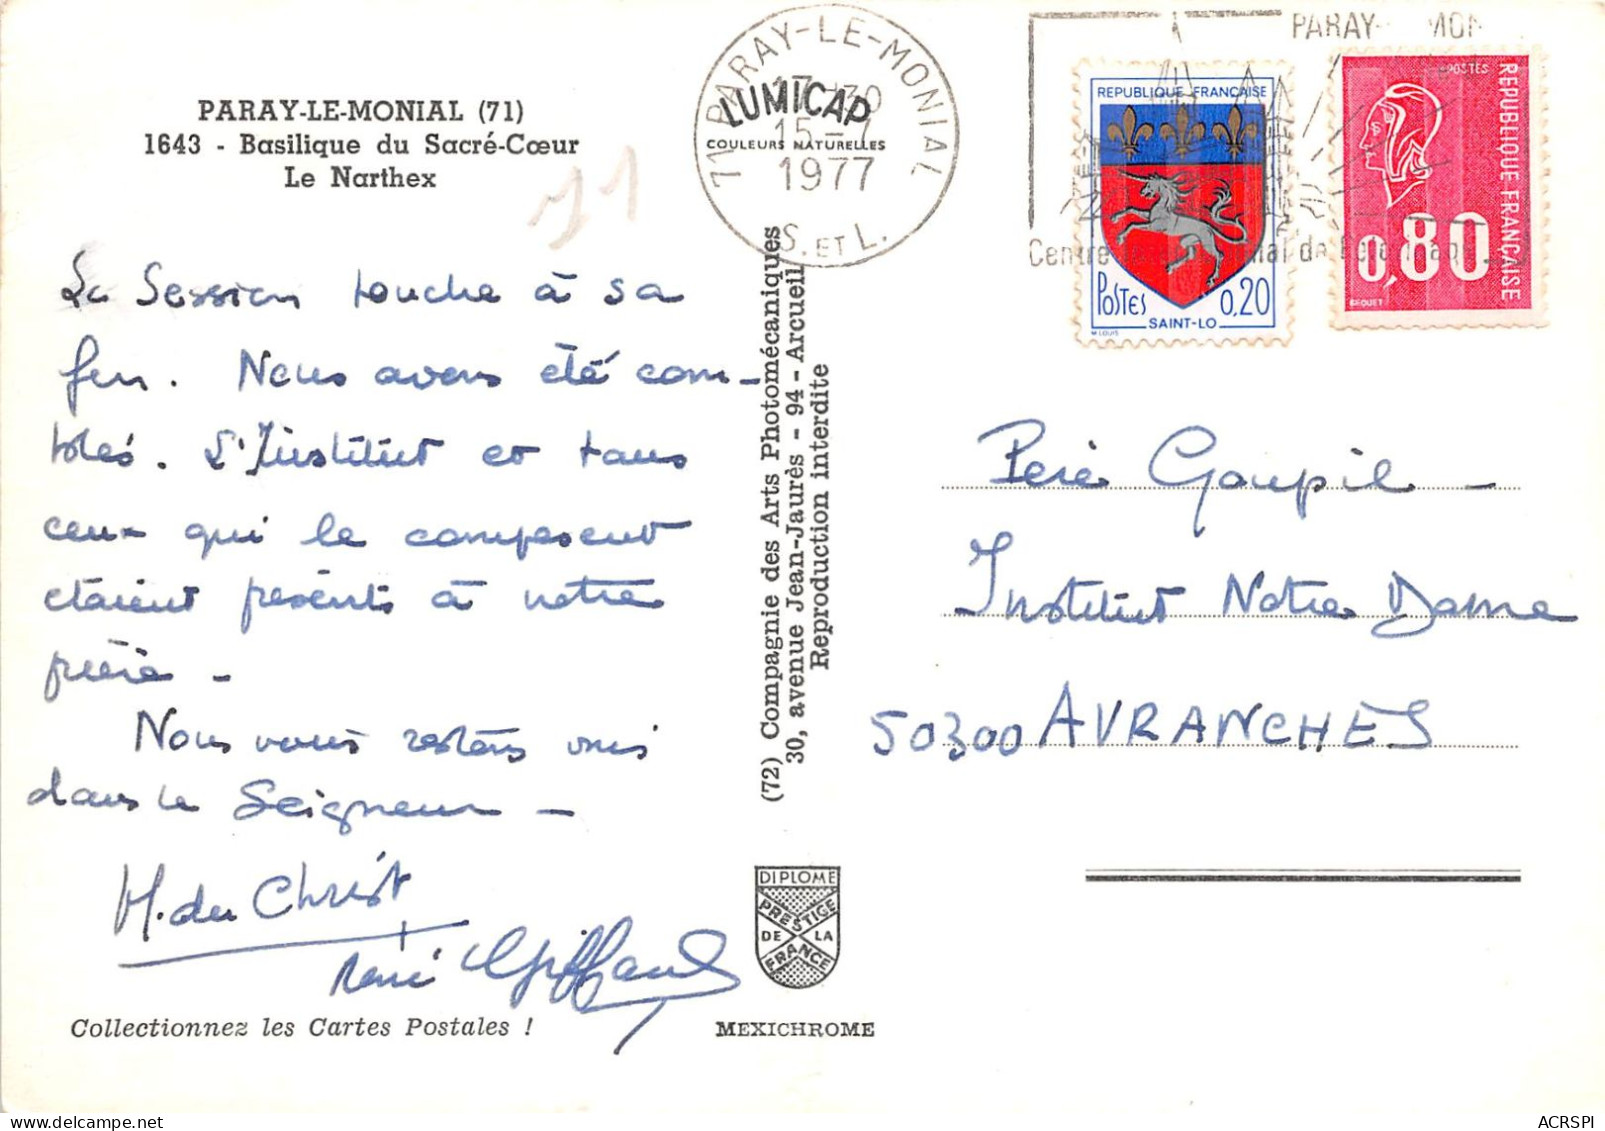 PARAY-LE-MONIAL (71)
1643 - Basilique du Sacré-Cœur
Le Narthex
71
La Session touche à sa
fin. Nous avons été com-
blés. L'Institut et tous
ceux qui le composent
étaient présents à notre
prière -
Nous vous restons unis
dans le Seigneur -
M. du Christ
+
René Giffard
Collectionnez les Cartes Postales !
71 PARAY-LE-MONIAL
17-30
15-7
1977
S. ET L.
LUMICAP
COULEURS NATURELLES
(72) Compagnie des Arts Photomécaniques
30, avenue Jean-Jaurès - 94 - Arcueil
Reproduction interdite
DIPLOME
PRESTIGE
DE LA
FRANCE
MEXICHROME
PARAY- MON
Centre
REPUBLIQUE FRANÇAISE
POSTES 0,20
SAINT-LO
M. LOUIS
POSTES
REPUBLIQUE FRANÇAISE
0,80
BEQUET
Père Goupil -
Institut Notre Dame
50300 AVRANCHES
ACRSPI